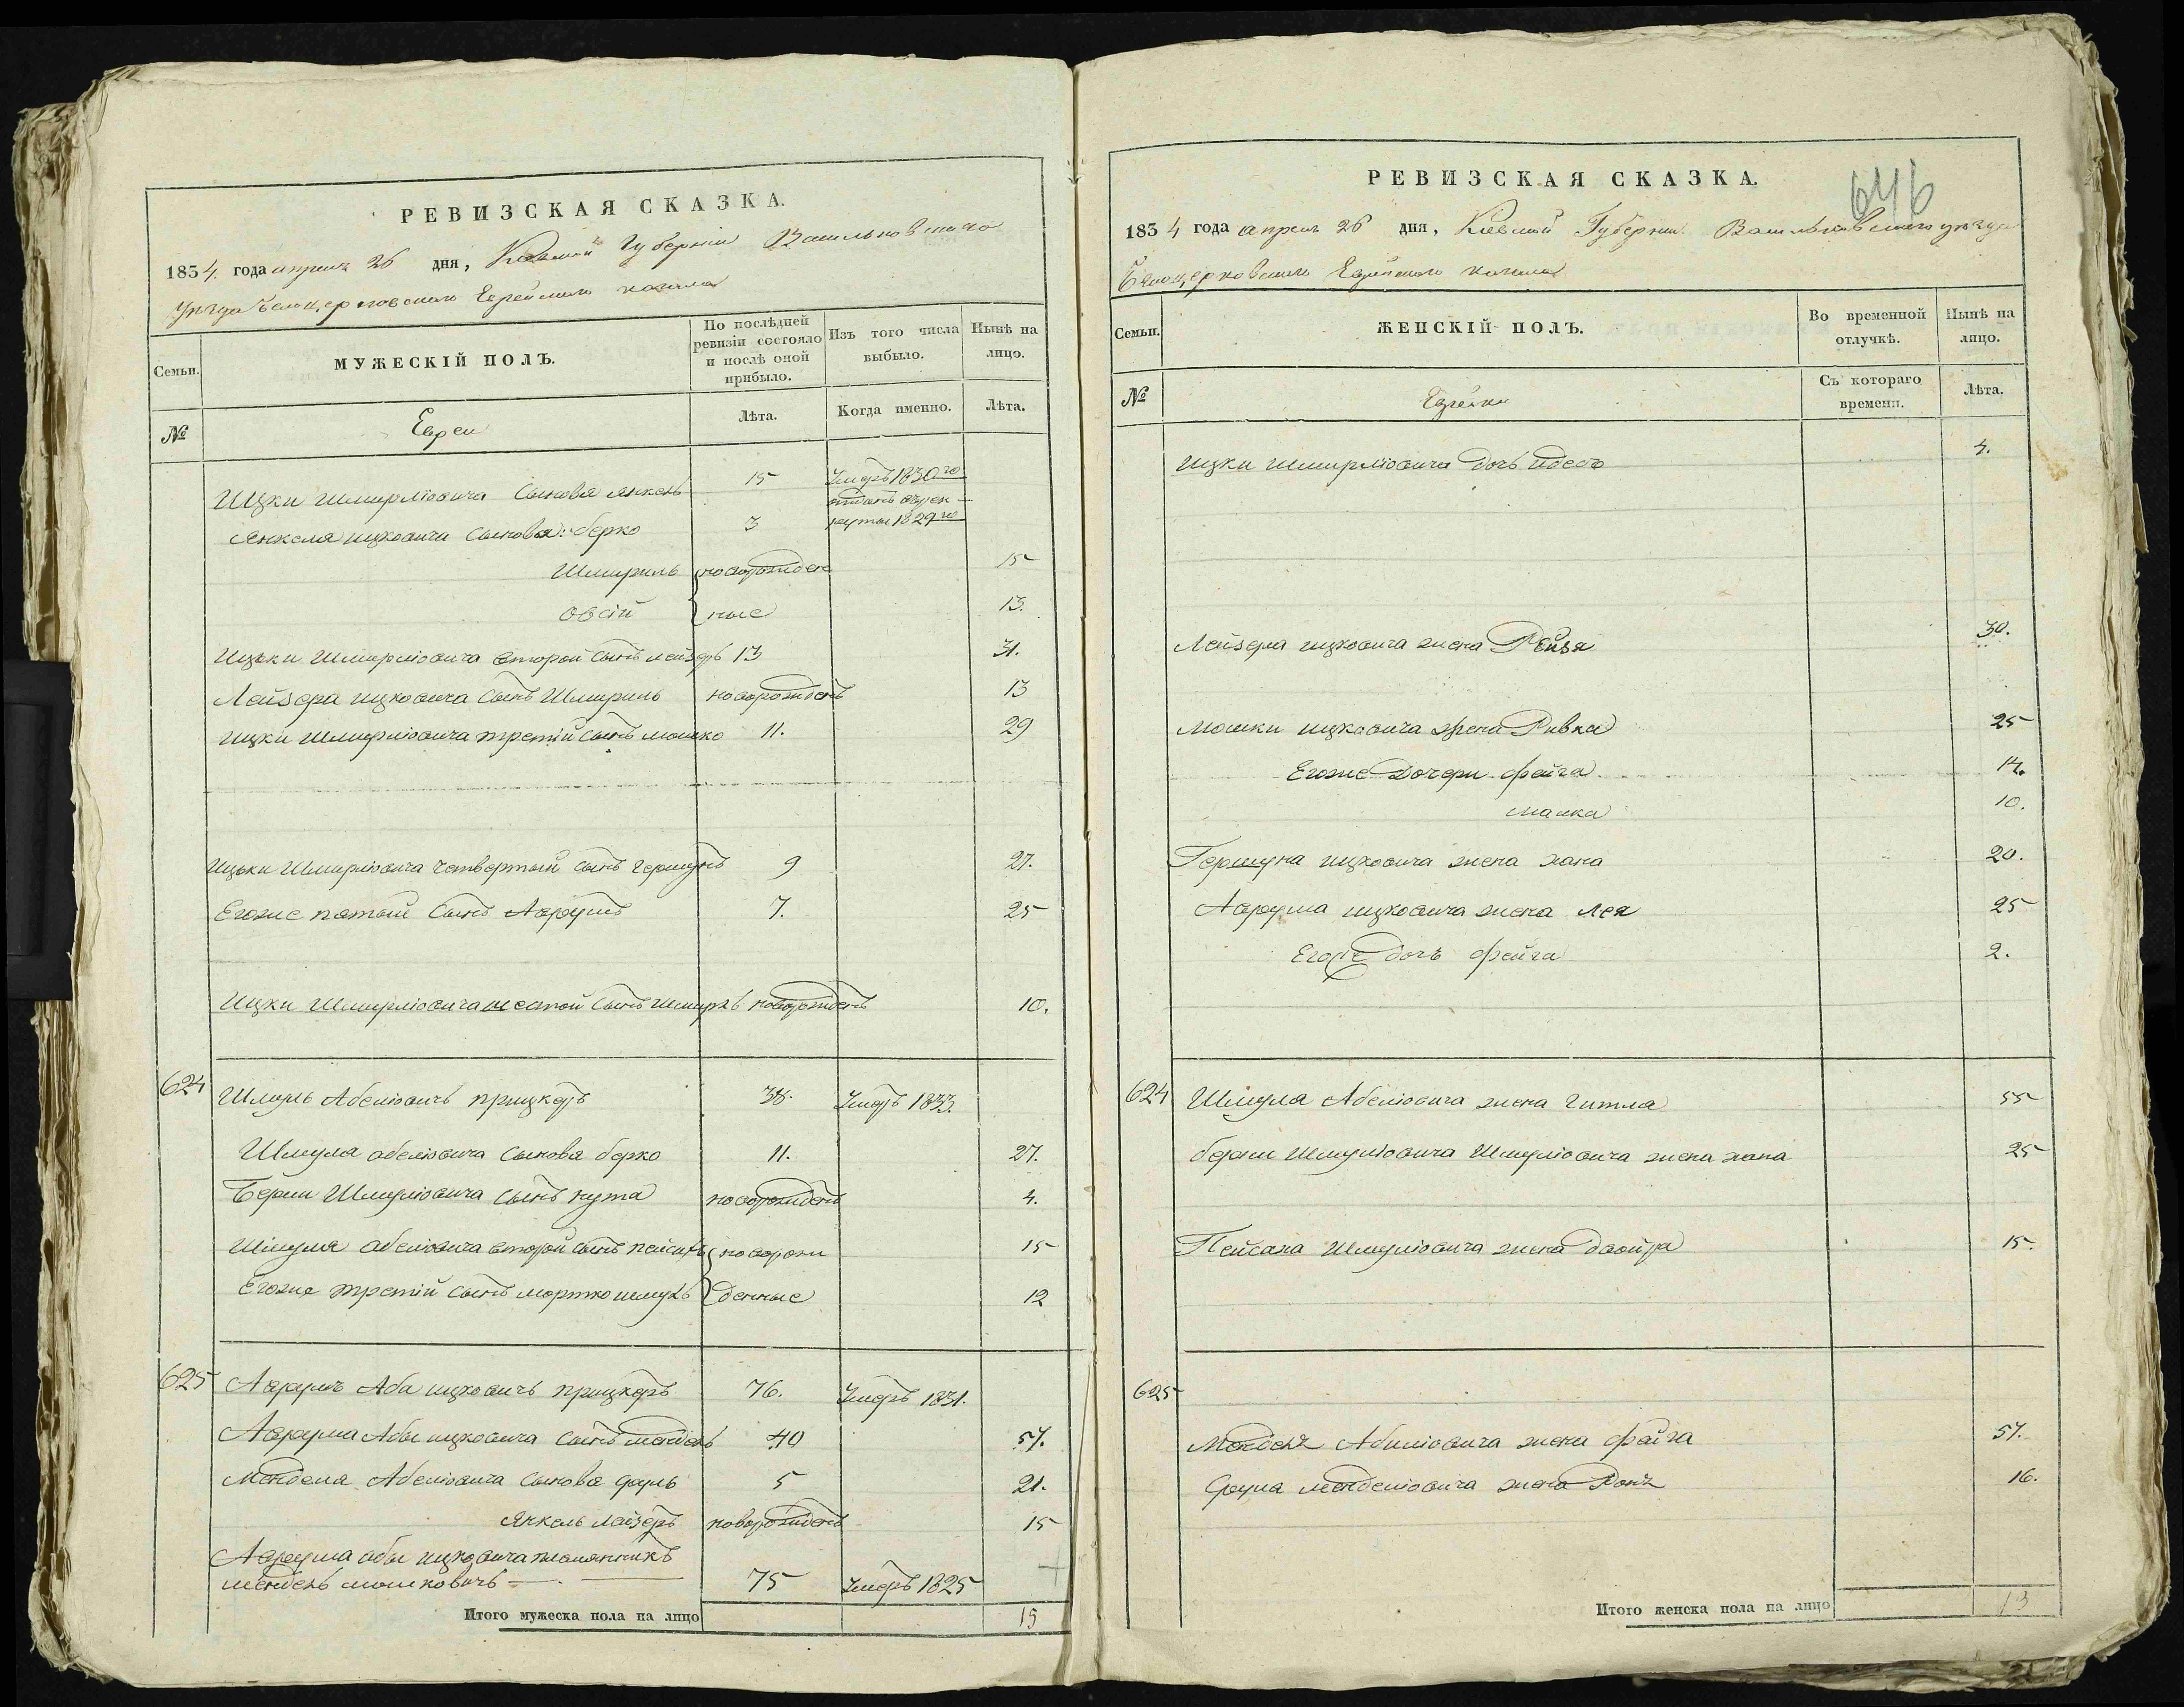 РЕВИЗСКАЯ СКАЗКА.
1834 года апреля 26 дня, Кіевской Губерніи Васильковскаго
уезда Белоцерковскаго Еврейскаго кагала
Семьи.
МУЖЕСКІЙ ПОЛЪ.
По послѣдней ревизіи состояло и послѣ оной прибыло.
Изъ того числа выбыло.
Нынѣ на лицо.
№
Евреи
Лѣта.
Когда именно.
Лѣта.
Ицки Шмирліовича сыновья Янкель 15 Умеръ 1830го
Янкеля ицковича сыновья: берко 3 отданъ в рекруты 1829го
Шмириль новорожден 15
овсій ные 13.
Ицьки Шмирліовича второй сынъ лейзеръ 13 31.
Лейзера ицковича сынъ Шмириль новорожденъ 13
Ицки Шмирліовича третій сынъ мошко 11. 29
Ицьки Шмирліовича четвертый сынъ гершунъ 9 27.
Егоже пятый сынъ Аврумъ 7. 25
Ицки Шмирліовича шестой сынъ новорожденъ 10.
624 Шмуль Абеліовичъ прицкеръ 38. Умеръ 1833.
Шмуля абеліовича сыновья берко 11. 27.
Берки Шмуліовича сынъ нута новорожденъ 4.
Шмуля абеліовича второй сынъ пейсахъ новорож 15
Егоже третій сынъ мортко шмуль денные 12
625 Аврумъ Аба ицковичъ прицкеръ 76. Умеръ 1831.
Аврума Абы ицковича сынъ мендель 40 57.
Менделя Абеліовича сыновья сруль 5 21.
Янкель Лейзеръ новорожденъ 15
Аврума абы ицковича племянникъ
мендель мошковичъ 75 Умеръ 1825
Итого мужеска пола на лицо 15
646
РЕВИЗСКАЯ СКАЗКА.
1834 года апреля 26 дня, Кіевской Губерніи Васильковскаго уезда
Белоцерковскаго Еврейскаго кагала
Семьи.
ЖЕНСКІЙ ПОЛЪ.
Во временной отлучкѣ.
Нынѣ на лицо.
№
Еврейки
Съ котораго времени.
Лѣта.
Ицки Шмирліовича дочь идесъ 4.
Лейзера ицковича жена Рейзя 30.
Мошки ицковича жена Ривка 25
Егоже дочери фейга 14.
малка 10.
Гершуна ицковича жена хана 20.
Аврума ицковича жена лея 25
Егоже дочь фейга 2.
624 Шмуля Абеліовича жена гитля 55
берки Шмуліовича Шмуліовича жена хана 25
Пейсаха шмуліовича жена двойра 15.
625
Менделя Абиліовича жена фейга 57.
Сруля менделіовича жена 16.
Итого женска пола на лицо 13